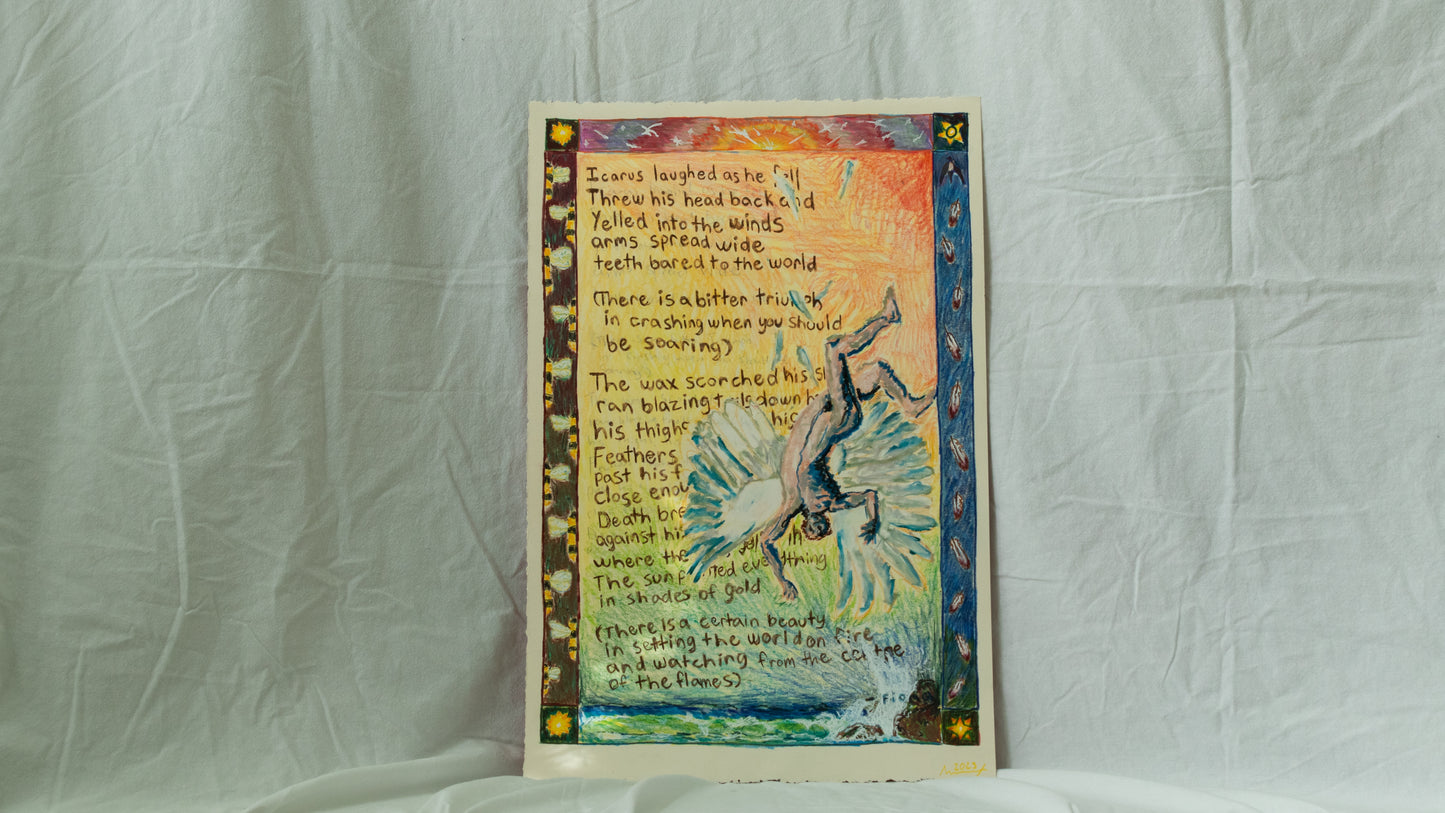 Icarus laughed as he fell
Threw his head back and
Yelled into the winds
arms spread wide
teeth bared to the world
(There is a bitter triumph
in crashing when you should
be soaring)
The wax scorched his
ran blazing down
his his
Feathers
past his
close
Death
against
where the
The sun everything
in shades of gold
(There is a certain beauty
in setting the world on fire
and watching from the
of the flames)
2023